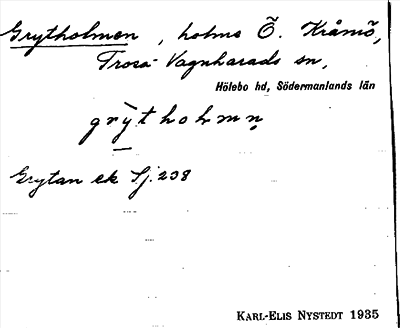 Grytholmen, holme Ö. Kråmö,
Trosa-Vagnhärads sn,
Hölebo hd, Södermanlands län
grỳtholmn̥
Grytan ek Sj. 238
KARL-ELIS NYSTEDT 1935